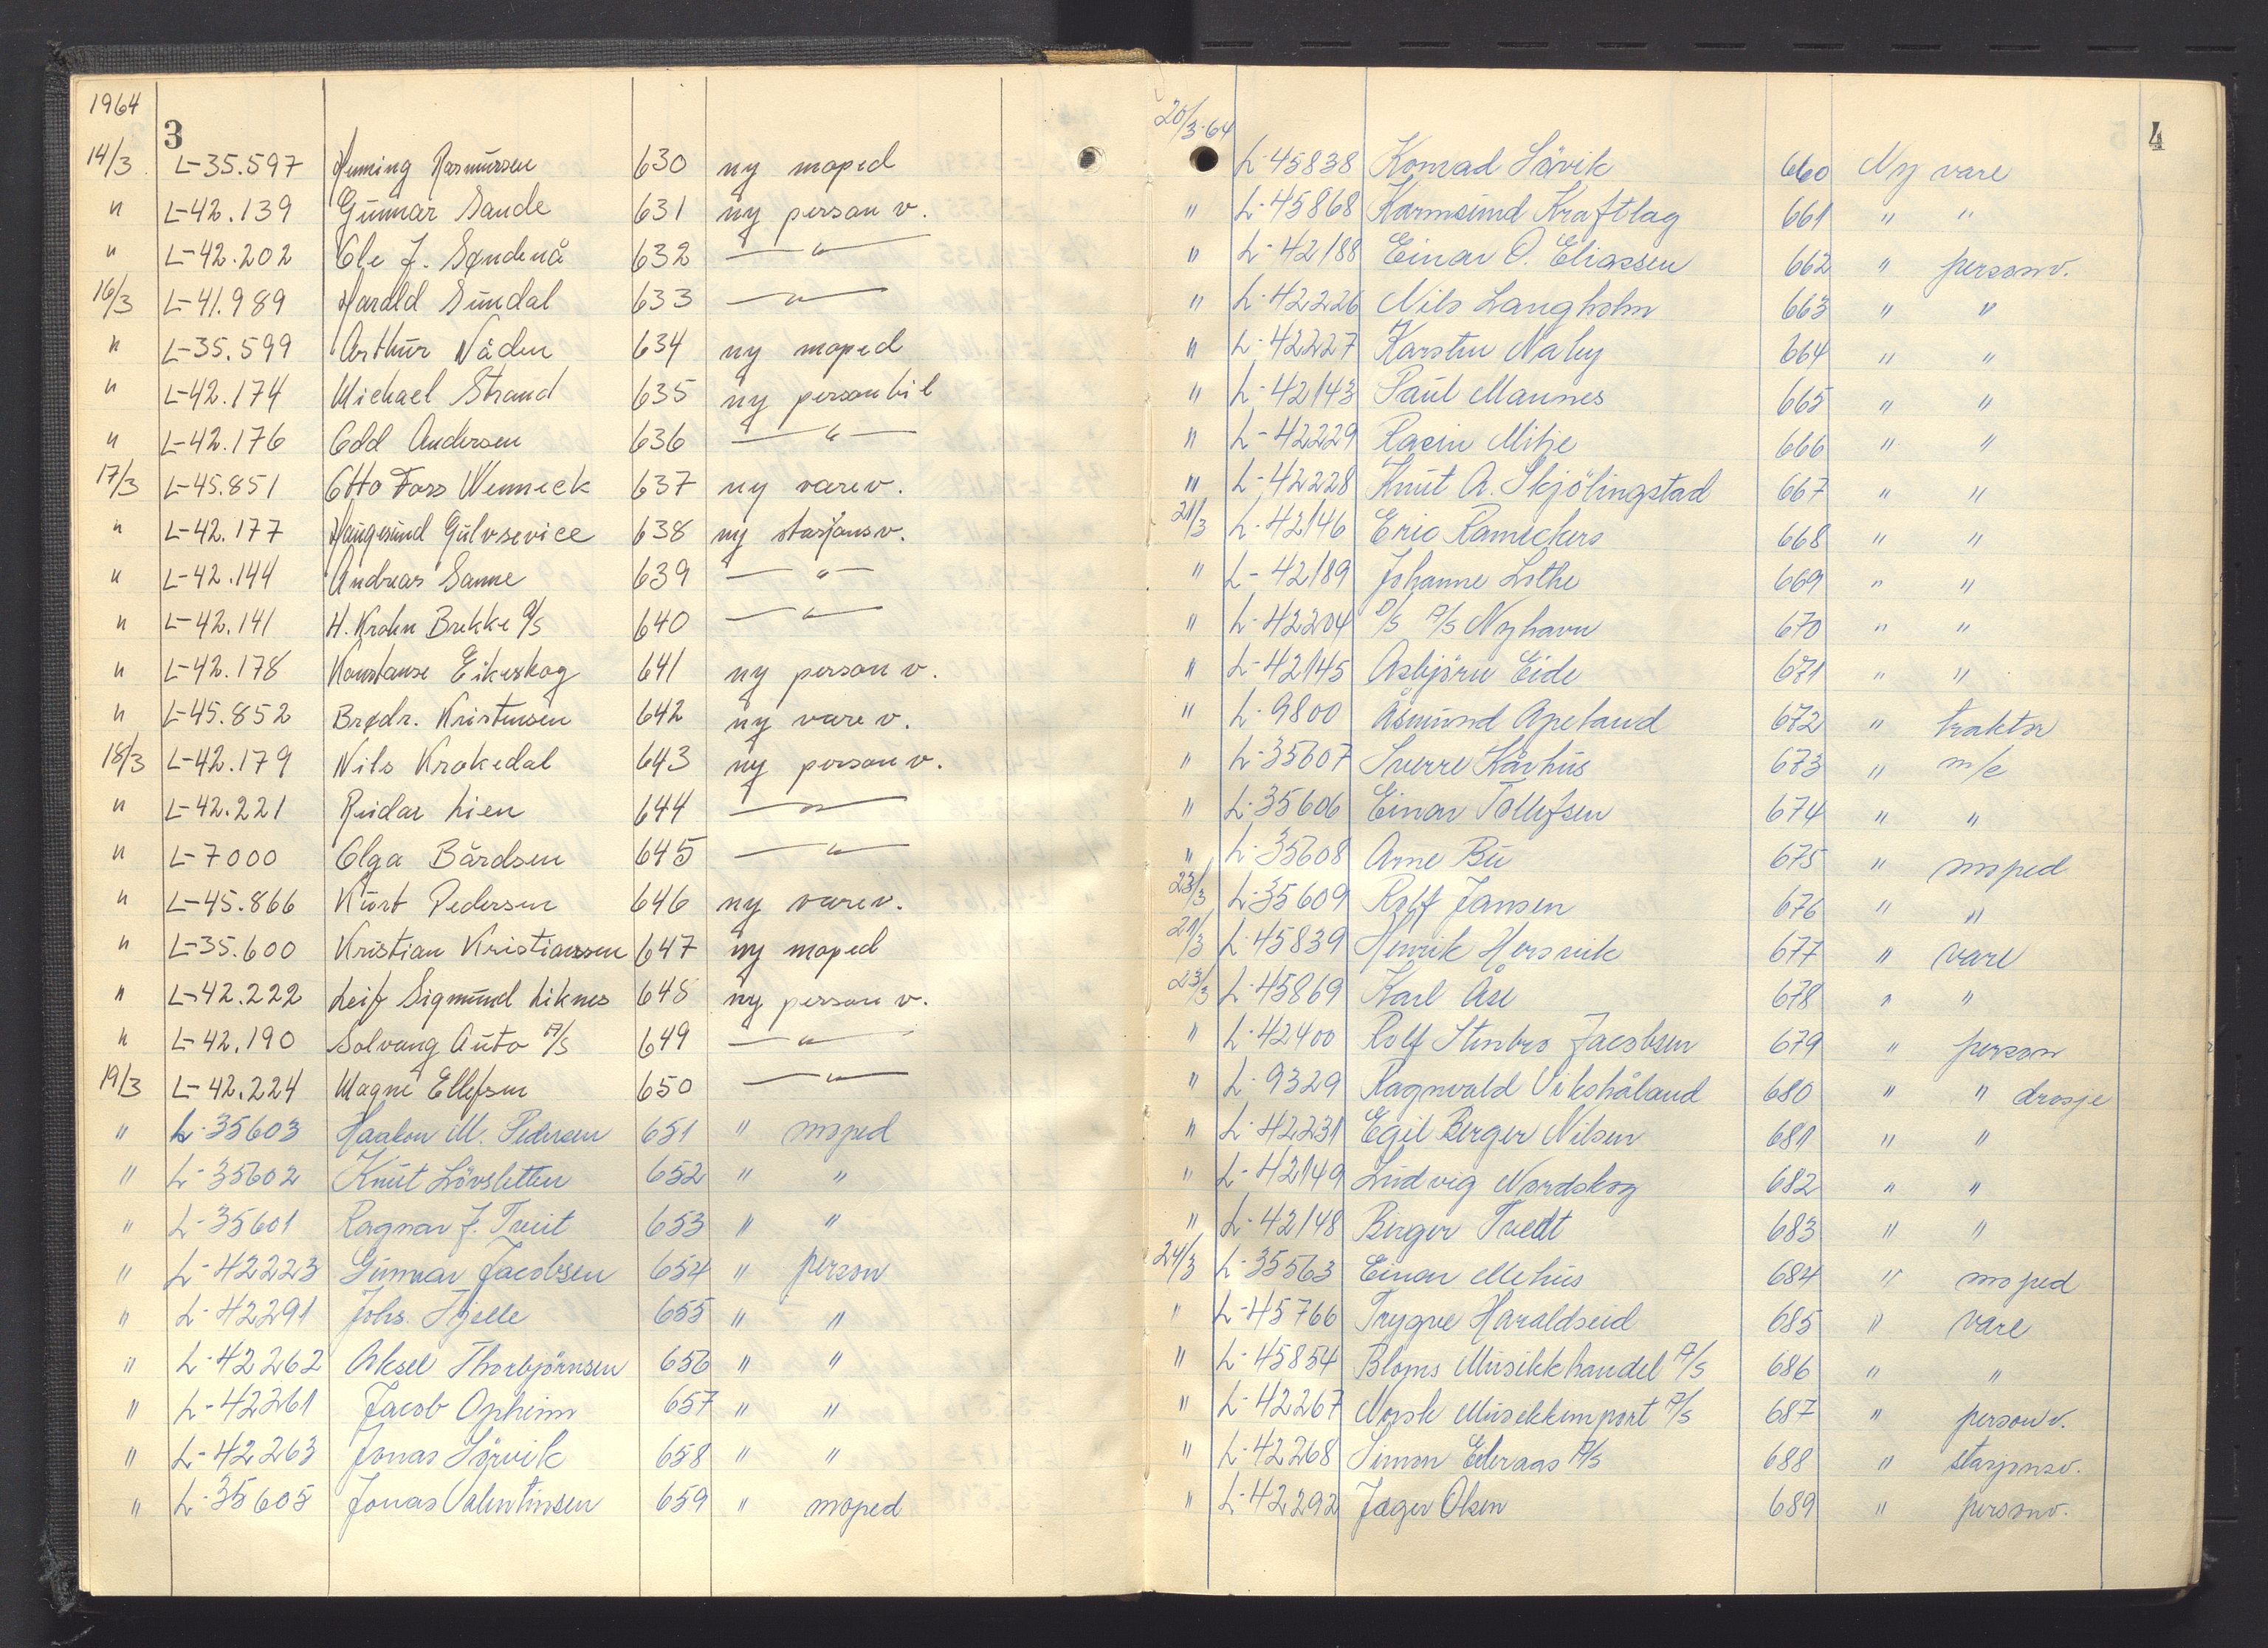 1964
3
14/3 L-35.597 Heming Rasmussen 630 ny moped
" L-42.139 Gunnar Sande 631 ny person v.
" L-42.202 Ole J. Søndenå 632 —"—
16/3 L-41.989 Harald Sundal 633 —"—
" L-35.599 Arthur Våden 634 ny moped
" L-42.174 Michael Strand 635 ny personbil
" L-42.176 Odd Andersen 636 —"—
17/3 L-45.851 Otto Foss Wenneck 637 ny varev.
" L-42.177 Haugesund Gulvsevice 638 ny stasjonsv.
" L-42.144 Andreas Sanne 639 —"—
" L-42.141 H. Krohn Brekke A/S 640 —"—
" L-42.178 Konstanse Eikeskog 641 ny person v.
" L-45.852 Brødr. Kristensen 642 ny vare v.
18/3 L-42.179 Nils Krakedal 643 ny person v.
" L-42.221 Reidar Lien 644 —"—
" L-7000 Olga Bårdsen 645 —"—
" L-45.866 Kurt Pedersen 646 ny varev.
" L-35.600 Kristian Kristianssen 647 ny moped
" L-42.222 Leif Sigmund Liknes 648 ny person v.
" L-42.190 Solvang Auto A/S 649 —"—
19/3 L-42.224 Magne Ellefsen 650 —"—
" L-35603 Haakon M. Pedersen 651 " moped
" L-35602 Knut Lövsletten 652 " "
" L-35601 Ragnar J. Tveit 653 " "
" L-42223 Gunnar Jacobsen 654 " person
" L-42291 Johs. Fjelle 655 " "
" L-42262 Aksel Thorbjörnsen 656 " "
" L-42261 Jacob Opheim 657 " "
" L-42263 Jonas Sörvik 658 " "
" L-35605 Jonas Valentinsen 659 " moped
4
20/3-64 L-45838 Konrad Sövik 660 Ny vare
" L-45868 Karmsund Kraftlag 661 " "
" L-42188 Einar O. Eliassen 662 " personv.
" L-42226 Nils Langholm 663 " "
" L-42227 Karsten Naley 664 " "
" L-42143 Paul Mannes 665 " "
" L-42229 Rasin Mitje 666 " "
" L-42228 Knut A. Skjölingstad 667 " "
21/3 L-42146 Eric Rameckers 668 " "
" L-42189 Johanne Lothe 669 " "
" L-42204 D/S A/S Nyhavn 670 " "
" L-42145 Asbjörn Eide 671 " "
" L-9800 Åsmund Apeland 672 " traktor
" L-35607 Sverre Kårhus 673 " m/c
" L-35606 Einar Tollefsen 674 " "
" L-35608 Arne Bu 675 " moped
23/3 L-35609 Rolf Jansen 676 " "
21/3 L-45839 Henrik Hersvik 677 " vare
23/3 L-45869 Karl Åse 678 " "
" L-42400 Rolf Stenbro Jacobsen 679 " person
" L-9329 Ragnvald Vikshåland 680 " " drosje
" L-42231 Egil Berger Nilsen 681 " "
" L-42149 Ludvig Nordskog 682 " "
" L-42148 Birger Tvedt 683 " "
24/3 L-35563 Einar Mehus 684 " moped
" L-45766 Trygve Haraldseid 685 " vare
" L-45854 Bloms Musikkhandel A/S 686 " "
" L-42267 Norsk Musikkimport A/S 687 " personv.
" L-42268 Simon Eideraas A/S 688 " stasjonsv.
" L-42292 Jæger Olsen 689 " personv.